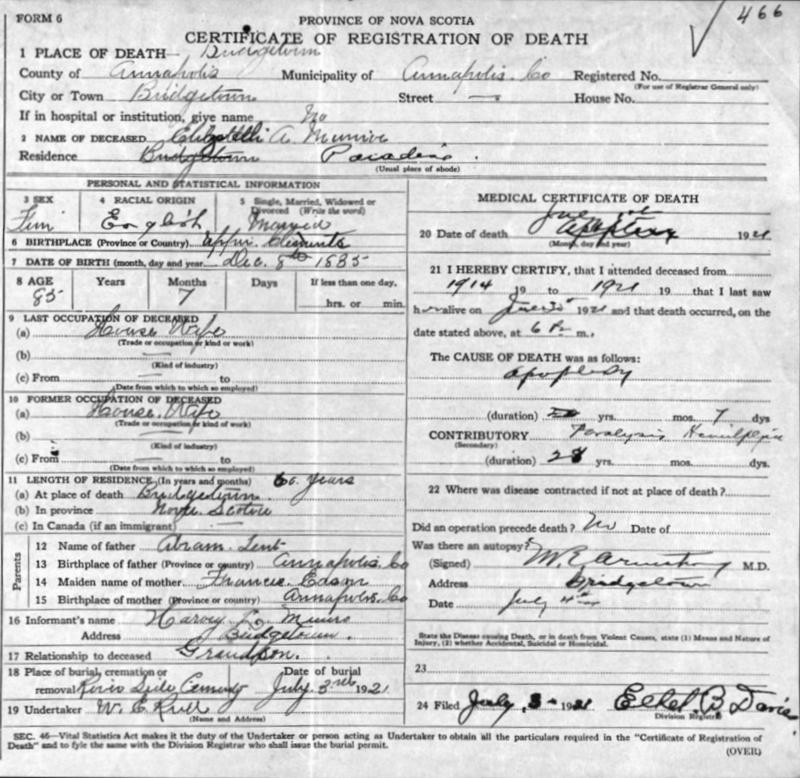 FORM 6
PROVINCE OF NOVA SCOTIA
466
CERTIFICATE OF REGISTRATION OF DEATH
1 PLACE OF DEATH— Bridgetown
County of Annapolis Municipality of Annapolis Co Registered No.
(For use of Registrar General only)
City or Town Bridgetown Street — House No.
If in hospital or institution, give name No
2 NAME OF DECEASED A. Munroe
Residence Bridgetown
(Usual place of abode)
PERSONAL AND STATISTICAL INFORMATION
3 SEX 4 RACIAL ORIGIN 5 Single, Married, Widowed or Divorced (Write the word)
Fem English Married
6 BIRTHPLACE (Province or Country) Clements
7 DATE OF BIRTH (month, day and year) Dec. 8th 1835
8 AGE Years Months Days If less than one day,
85 7 hrs. or min.
9 LAST OCCUPATION OF DECEASED
(a) House Wife
(Trade or occupation or kind or work)
(b) —
(Kind of industry)
(c) From — to
(Date from which to which so employed)
10 FORMER OCCUPATION OF DECEASED
(a) House Wife
(Trade or occupation or kind of work)
(b) —
(Kind of industry)
(c) From — to
(Date from which to which so employed)
11 LENGTH OF RESIDENCE (In years and months) 60 years
(a) At place of death Bridgetown
(b) In province Nova Scotia
(c) In Canada (if an immigrant) —
Parents
12 Name of father Abram Lent
13 Birthplace of father (Province or country) Annapolis Co
14 Maiden name of mother Francis Edson
15 Birthplace of mother (Province or country) Annapolis Co
16 Informant's name Harvey L. Munro
Address Bridgetown.
17 Relationship to deceased Grandson.
18 Place of burial, cremation or removal River Side Cemetery Date of burial July 3rd 1921
19 Undertaker W. E.
(Name and Address)
MEDICAL CERTIFICATE OF DEATH
20 Date of death 1921
(Month, day and year)
21 I HEREBY CERTIFY, that I attended deceased from
1914 19 to 1921 19 that I last saw
her alive on 1921 and that death occurred, on the
date stated above, at 6 P m.,
The CAUSE OF DEATH was as follows:
apoplexy
(duration) yrs. mos. 7 dys
CONTRIBUTORY Paralysis Hemiplegia
(Secondary)
(duration) yrs. mos. dys.
22 Where was disease contracted if not at place of death?
Did an operation precede death? No Date of
Was there an autopsy?
(Signed) M. E. Armstrong M.D.
Address Bridgetown
Date July 4th
State the Disease causing Death, or in death from Violent Causes, state (1) Means and Nature of
Injury, (2) whether Accidental, Suicidal or Homicidal.
23
24 Filed July 3 1921 Ethel B Davies
Division Registrar
SEC. 46—Vital Statistics Act makes it the duty of the Undertaker or person acting as Undertaker to obtain all the particulars required in the "Certificate of Registration of
Death" and to fyle the same with the Division Registrar who shall issue the burial permit.
(OVER)